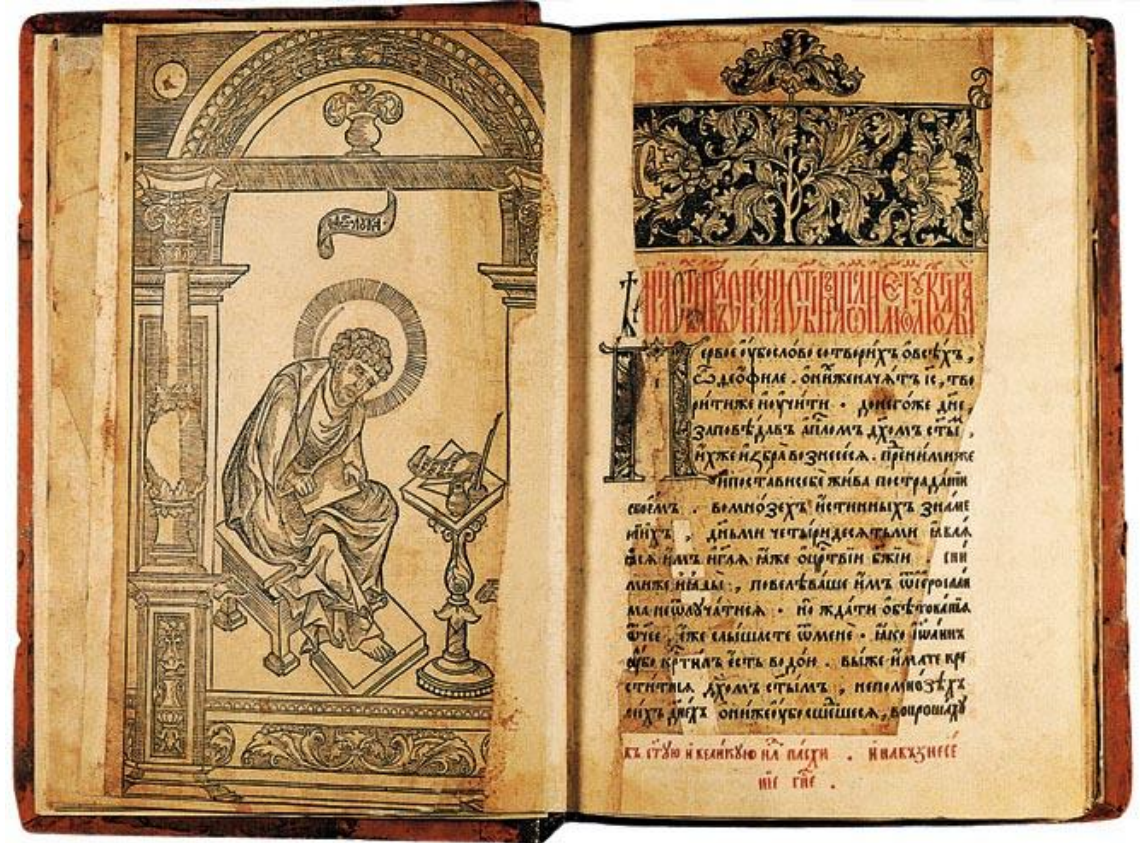 Первое ᲂу҆бо слово сотвори́хъ ѡ҆ всѣ́хъ,
ѽ ѳео́филе. ѡ҆ ни́хже нача́тъ і҆с, тво
ри́ти же и҆ ᲂу҆чи́ти. до него́же дн҃е,
заповѣ́давъ а҆пⷭ҇ломъ дх҃омъ ст҃ы́м,
и҆́хже и҆збра̀ вознесе́сѧ. пред̾ ни́ми же
и҆ поста́ви себѐ жи́ва по страда́нїи
свое́мъ. во мно́зехъ и҆́стинныхъ зна́ме
нїихъ, дньмѝ четы́ридесѧтьми ꙗ҆влѧ́
ꙗсѧ и҆̀мъ и҆ гл҃ѧ ꙗ҆́же ѡ҆ црⷭ҇твїи бж҃їи. с ни
ми же и҆ ꙗды̀, повелѣ́ваше и҆̀мъ ѿ і҆ерⷭ҇оли
ма не ѿлꙋча́тисѧ. но жда́ти ѡ҆бѣтова́нїѧ
ѻ҆́ч҃ее, є҆́же слы́шасте ѿ менѐ. ꙗ҆́ко і҆ѡа́ннъ
ᲂу҆́бо крⷭ҇ти́лъ є҆́сть водо́ю. вы́ же и҆́мате кре
сти́тисѧ дх҃омъ ст҃ы́мъ, не по мно́зѣхъ
си́хъ дне́хъ ѻ҆ни́же ᲂу҆бо сше́дшесѧ, вопроша́хꙋ
въ ст҃ꙋю и҆ вели́кꙋю нлⷣю па́схи. и҆ на възнесе́
нїе гн҃е.